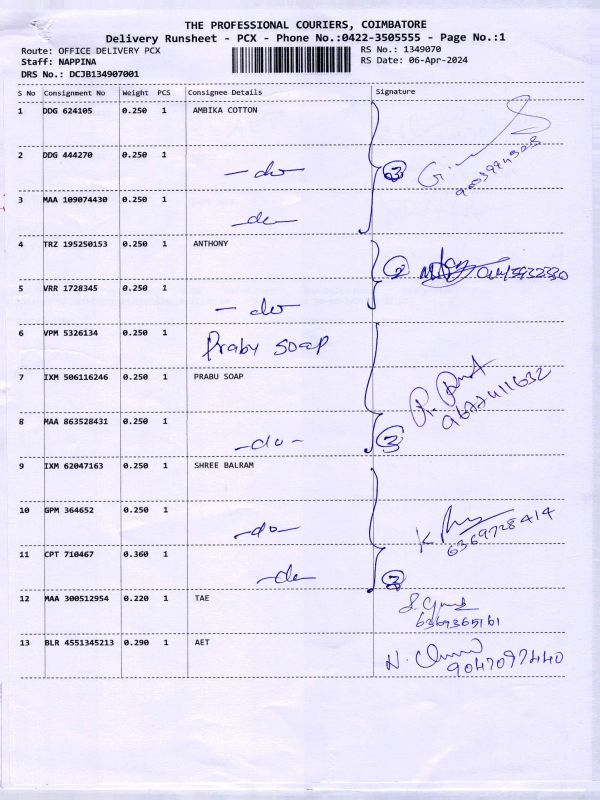 THE PROFESSIONAL COURIERS, COIMBATORE
Delivery Runsheet - PCX - Phone No.:0422-3505555 - Page No.:1
Route: OFFICE DELIVERY PCX RS No.: 1349070
Staff: NAPPINA RS Date: 06-Apr-2024
DRS No.: DCJB134907001
S No Consignment No Weight PCS Consignee Details Signature
1 DDG 624105 0.250 1 AMBIKA COTTON
2 DDG 444270 0.250 1 -do- 3
3 MAA 109074430 0.250 1 -do-
4 TRZ 195250153 0.250 1 ANTHONY 2
5 VRR 1728345 0.250 1 -do-
6 VPM 5326134 0.250 1 Praby Soap
7 IXM 506116246 0.250 1 PRABU SOAP
8 MAA 863528431 0.250 1 -do- 3
9 IXM 62047163 0.250 1 SHREE BALRAM
10 GPM 364652 0.250 1 -do- 6369728414
11 CPT 710467 0.360 1 -do- 3
12 MAA 300512954 0.220 1 TAE
6369365161
13 BLR 4551345213 0.290 1 AET
9047097440